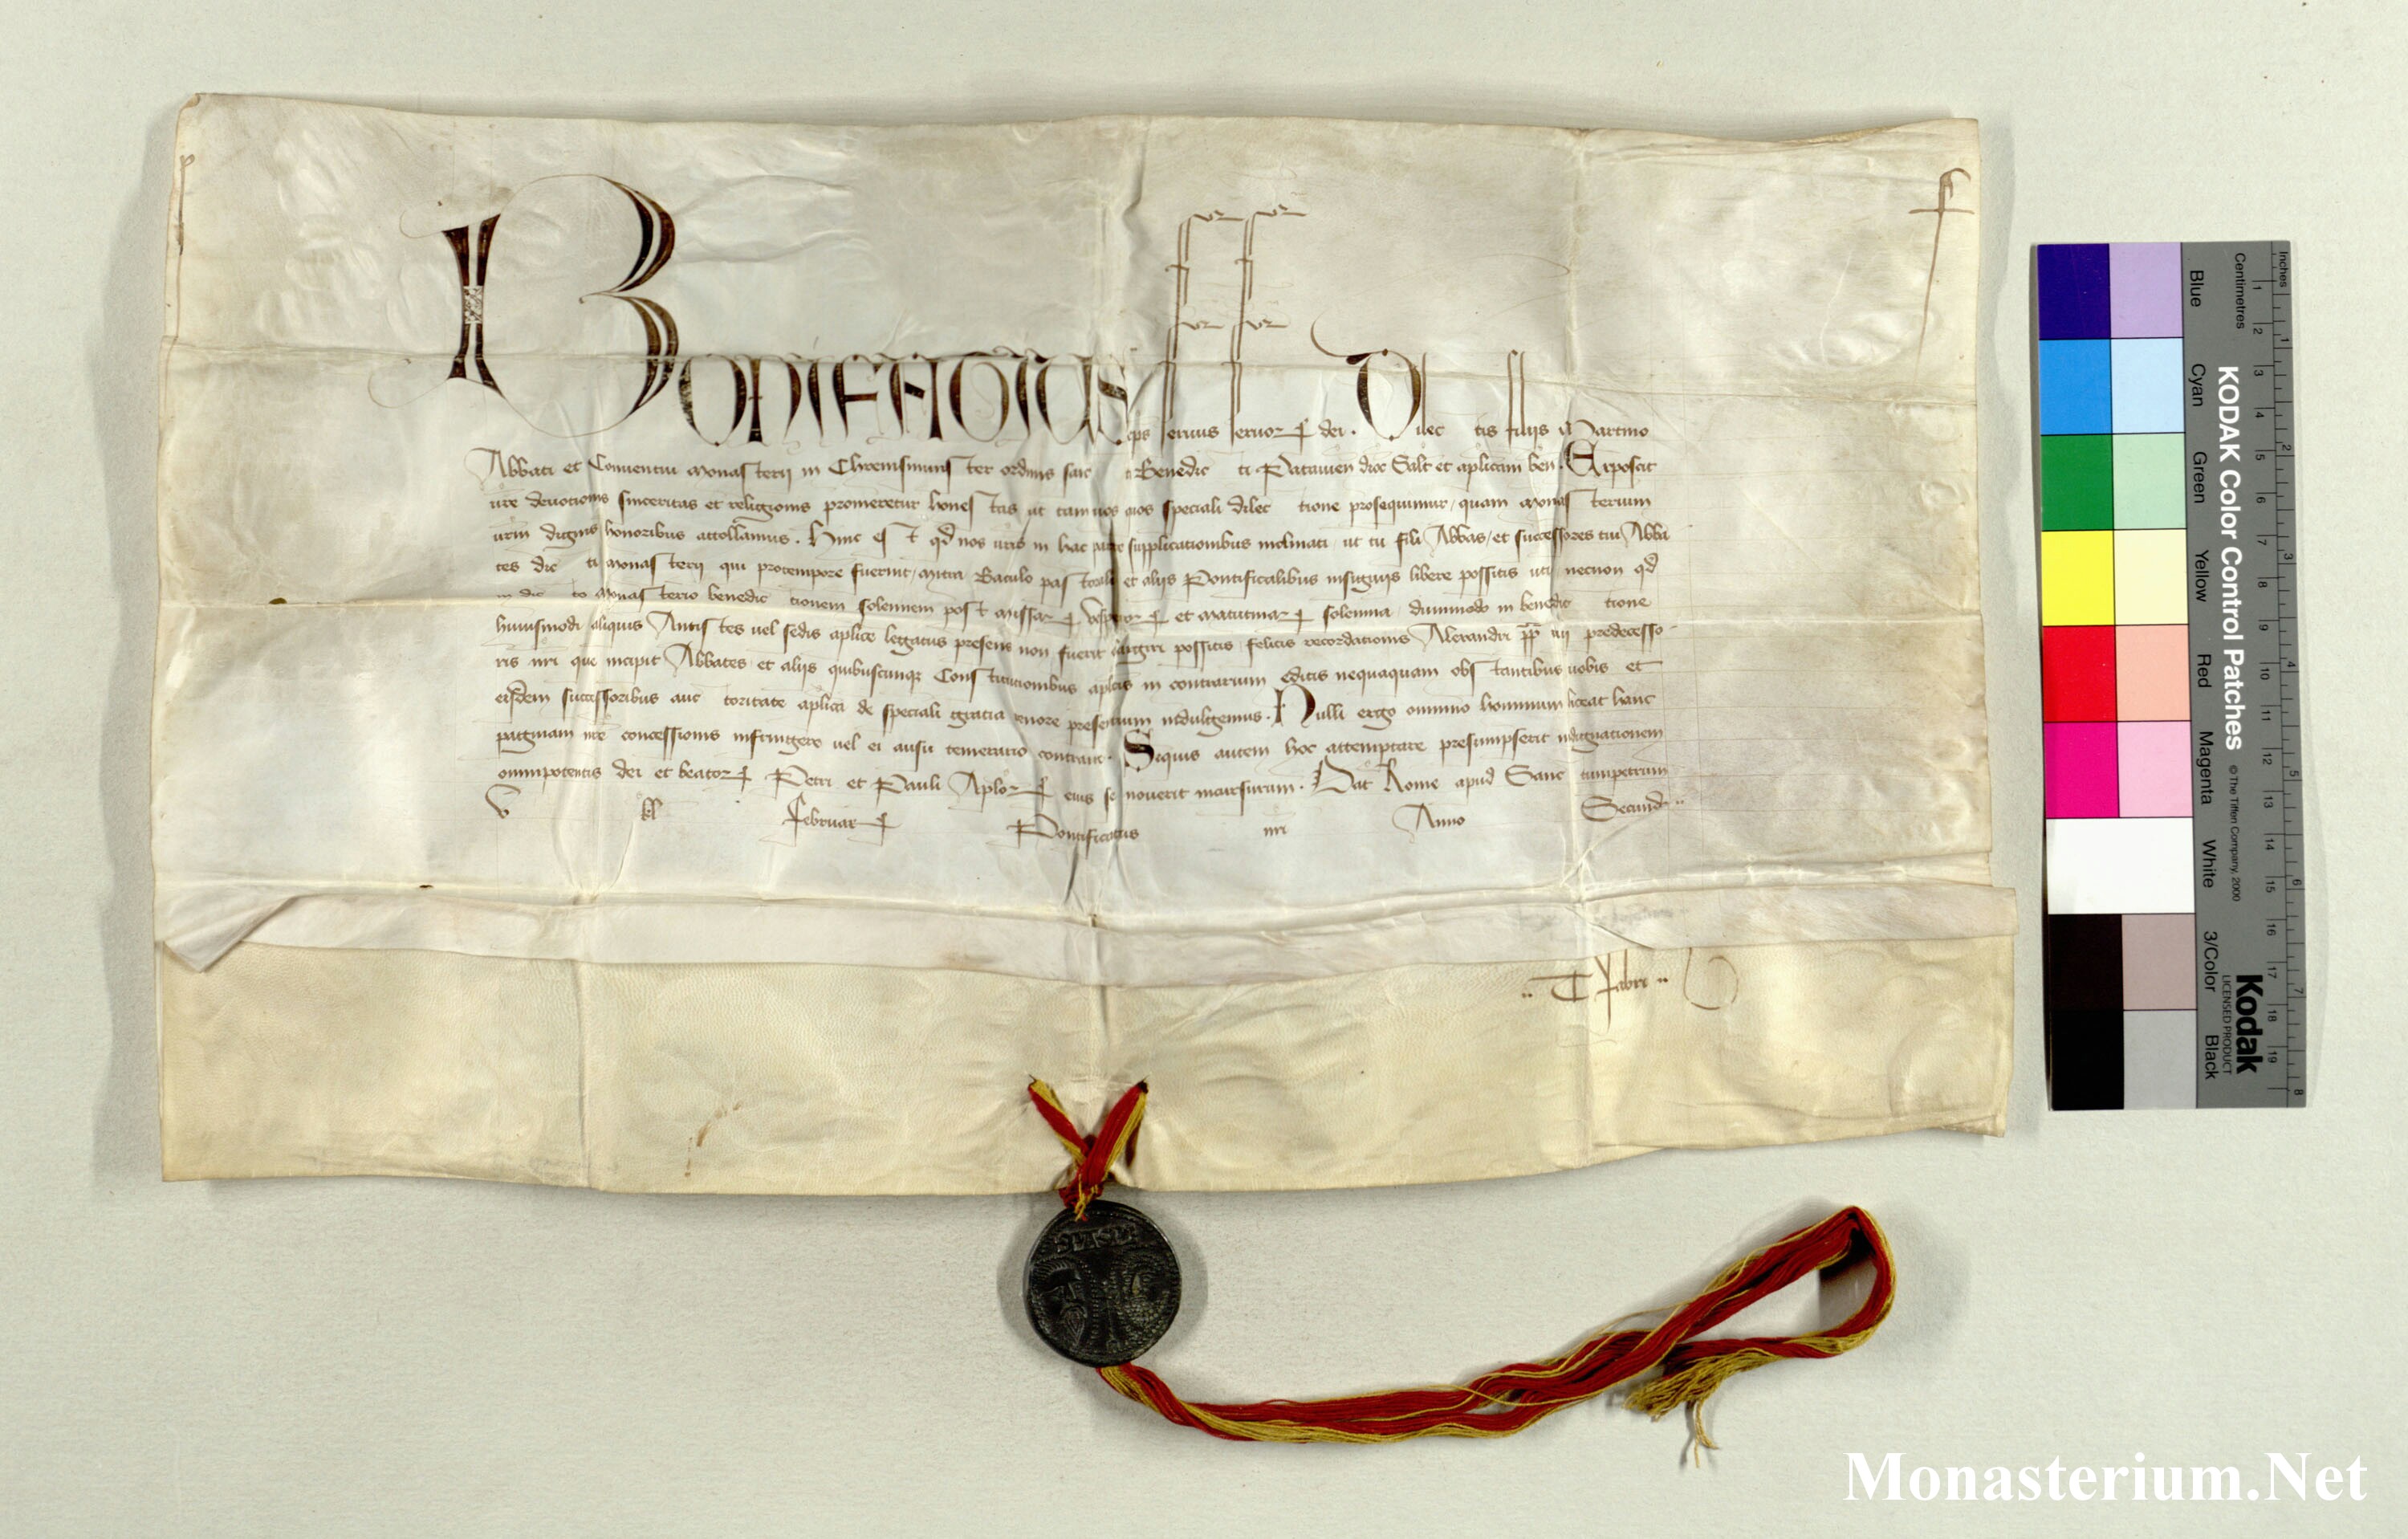 Bonifacius eps seruus seruor dei. Dilectis filiis Martino
Abbati et Conuentui Monasterij in Chremsmunster ordinis sancti Benedicti Patauien dioc Salt et aplicam ben. Exposcit
ure deuotionis sinceritas et religionis promeretur honestas ut tam uos quos speciali dilectione prosequimur, quam Monasterium
urm dignis honoribus attollamus. Hinc est qd nos uris in hac parte supplicationibus inclinati ut tu fili Abbas, et successores tui Abba
tes dicti Monasterij qui protempore fuerint, Mitra Baculo pastorali et aliis Pontificalibus insigniis libere possitis uti necnon qd
in dicto Monasterio benedictionem solennem post Missar Vespror et Matutinar solennia dummodo in benedictione
huiusmodi aliquis Antistes uel sedis aplice legatus presens non fuerit largiri possitis felicis recordationis Alexandri pp iiij predecesso
ris nri que incipit Abbates et aliis quibuscunque Constitutionibus aplicis in contrarium editis nequaquam obstantibus uobis et
eisdem successoribus auctoritate aplica de speciali gratia tenore presentium indulgemus. Nulli ergo omnino hominum liceat hanc
paginam nre concessionis infringere uel ei ausu temerario contraire. Siquis autem hoc attemptare presumpserit indignationem
omnipotentis dei et beator Petri et Pauli Aplor eius se nouerit incursurum. Dat Rome apud Sanctumpetrum
V kl Februar Pontificatus nri Anno Secundo
T Fabri
SPASPE
Inches
Centimetres
1 2 3 4 5 6 7 8 9 10 11 12 13 14 15 16 17 18 19
1 2 3 4 5 6 7 8
KODAK Color Control Patches © The Tiffen Company, 2000
Kodak
LICENSED PRODUCT
Blue Cyan Green Yellow Red Magenta White 3/Color Black
Monasterium.Net